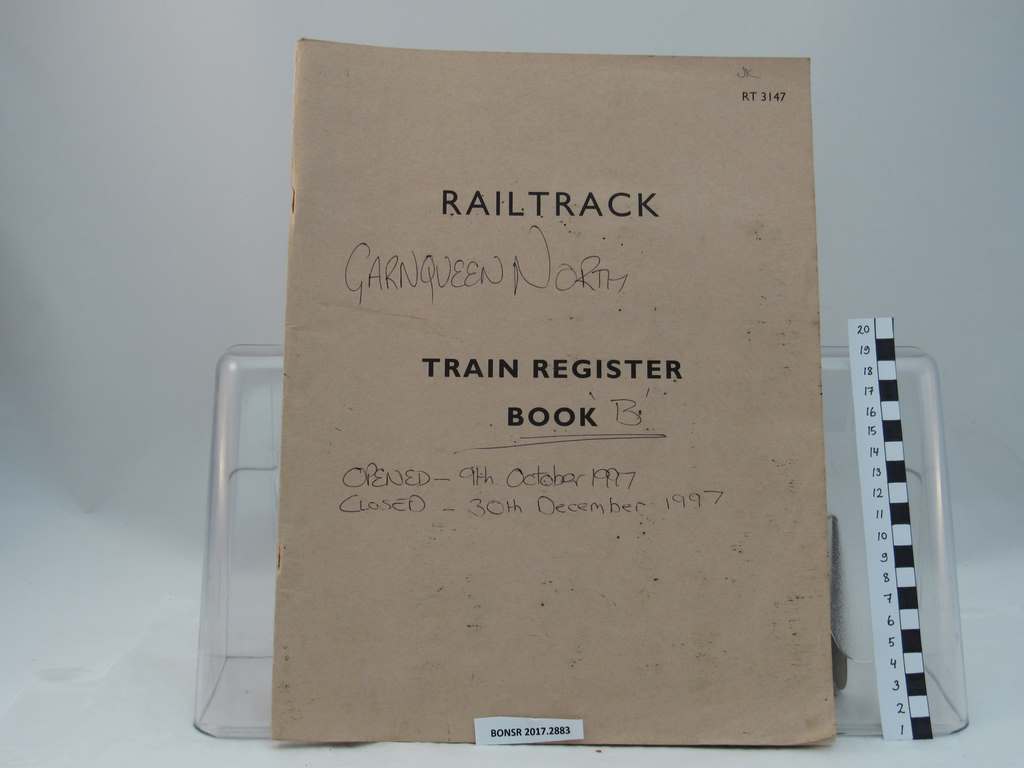 JK
RT 3147
RAILTRACK
GARNQUEEN NORTH
TRAIN REGISTER
BOOK 'B'
OPENED - 9th October 1997
CLOSED - 30th December 1997
20
19
18
17
16
15
14
13
12
11
10
9
8
7
6
5
4
3
2
1
BONSR 2017.2883